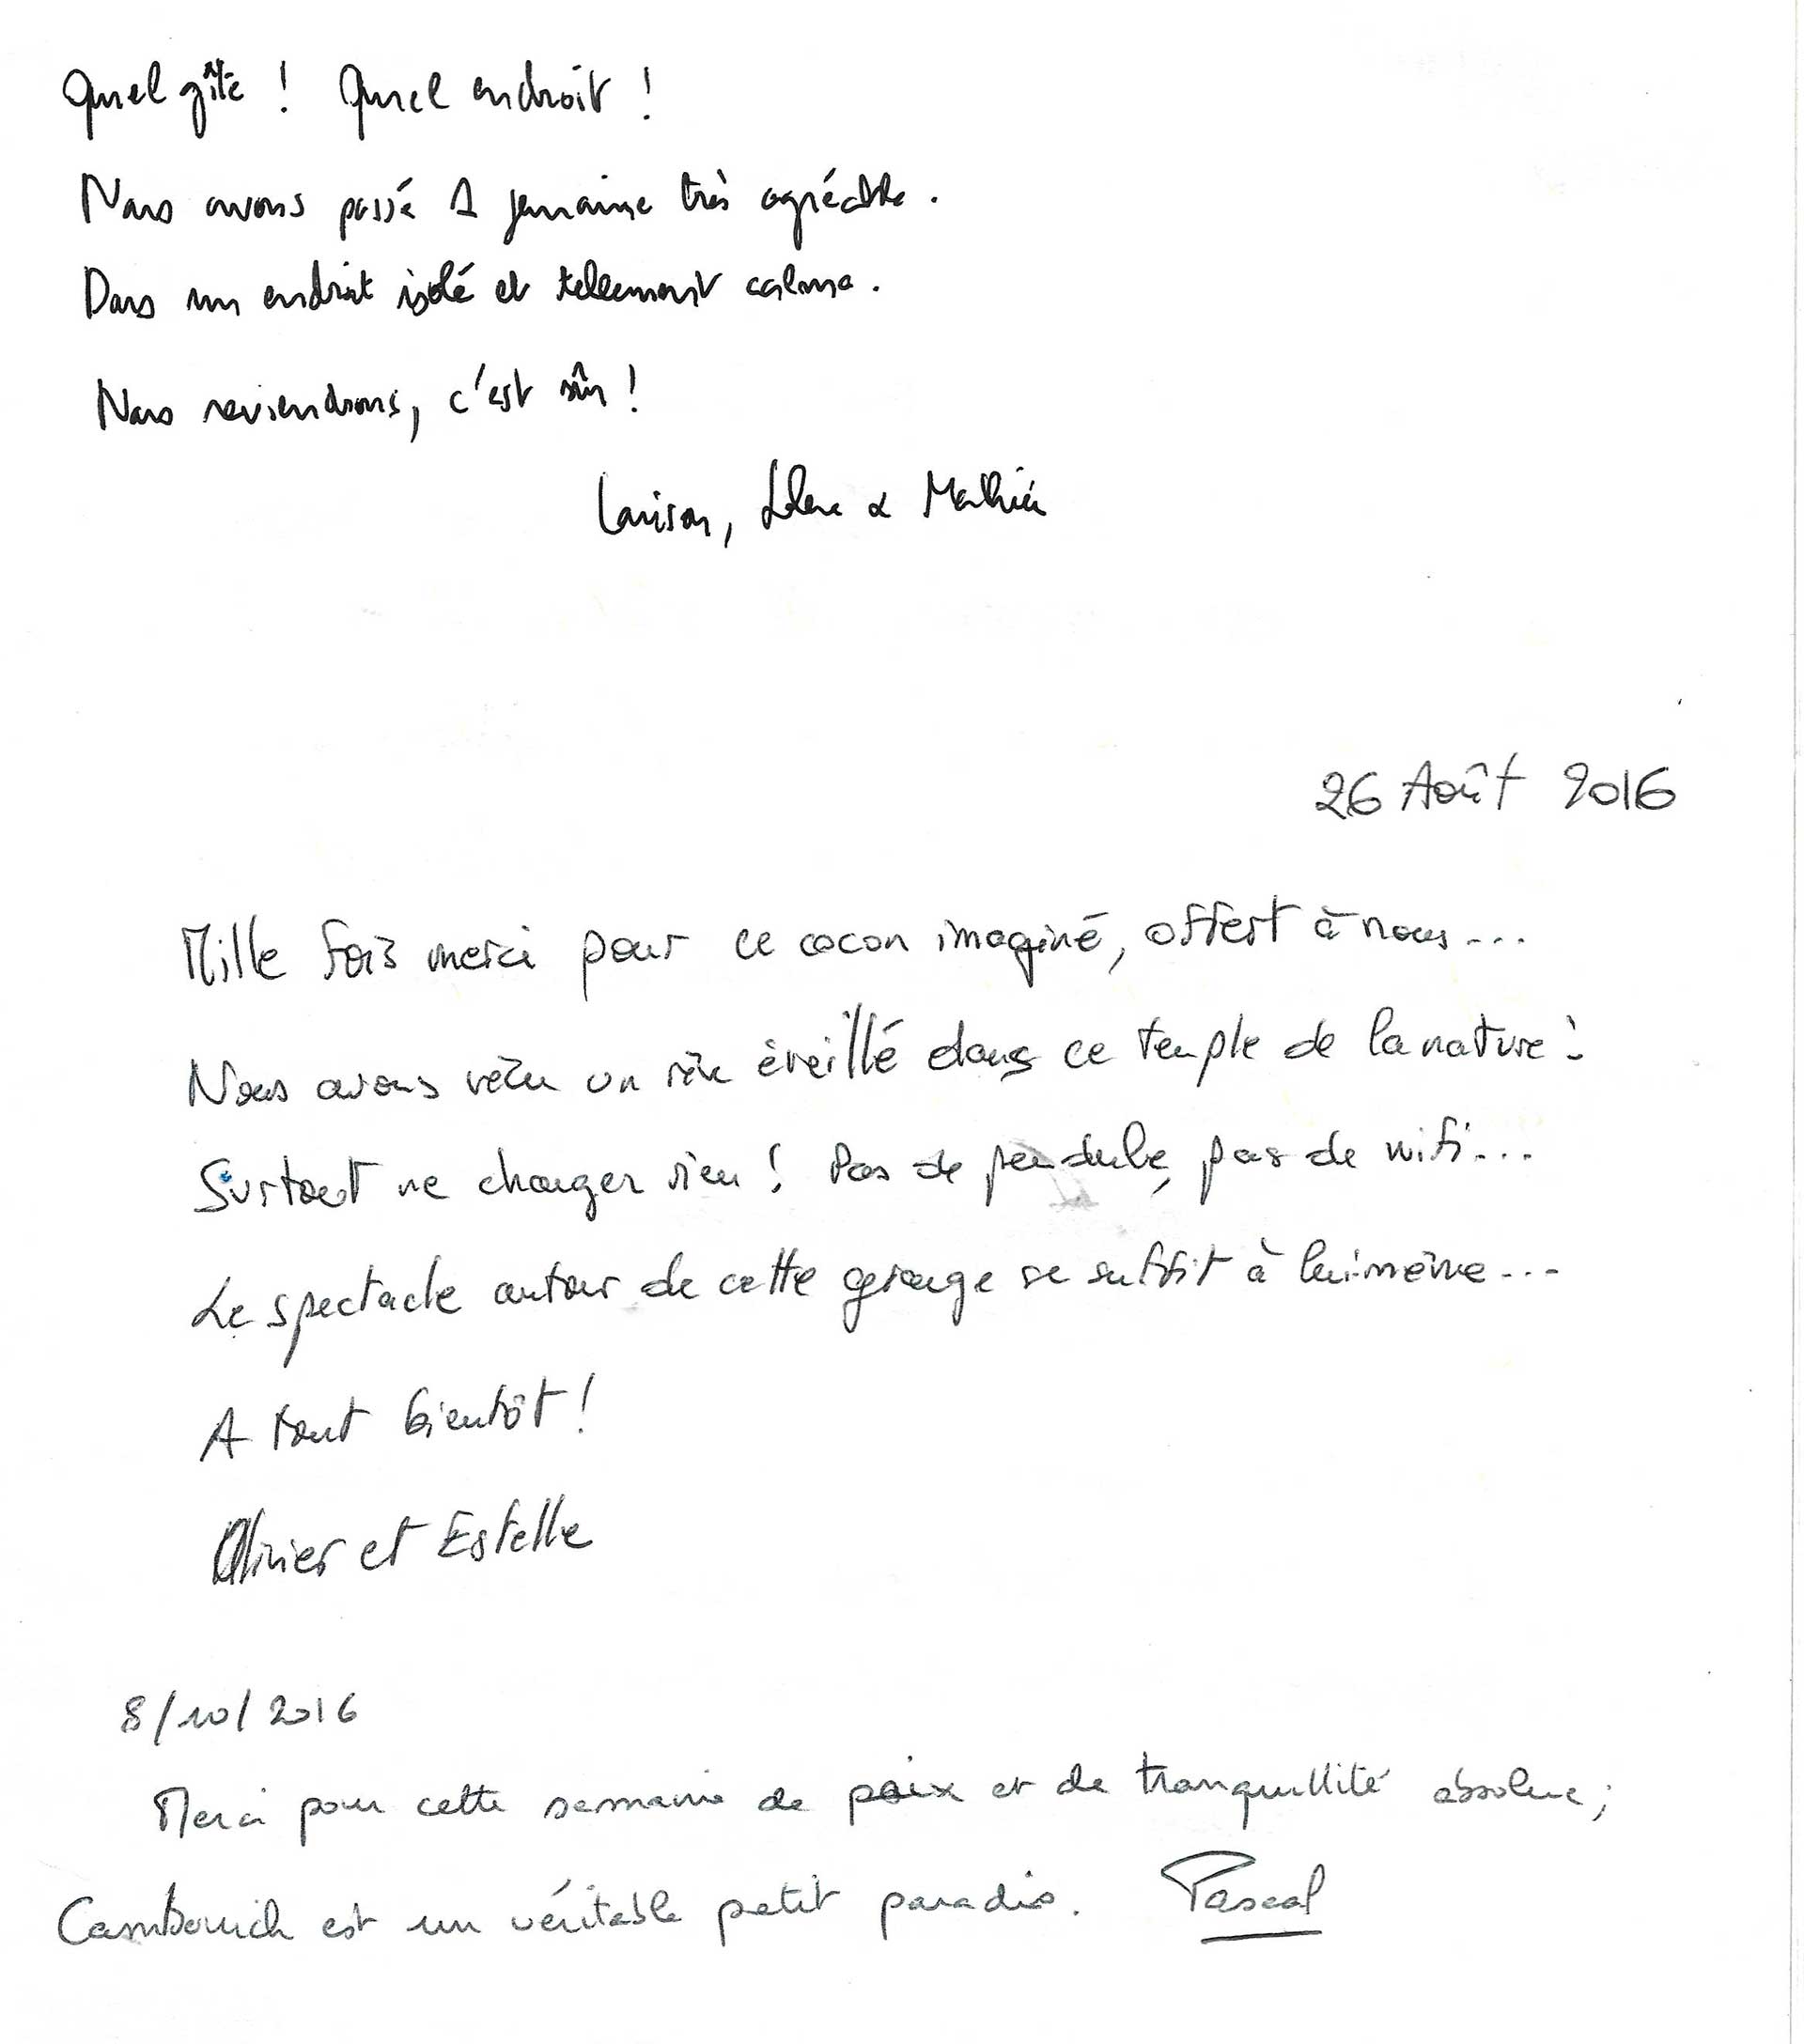 Quel gîte ! Quel endroit !
Nous avons passé 1 semaine très agréable.
Dans un endroit isolé et tellement calme.
Nous reviendrons, c'est sûr !
&
26 Août 2016
Mille fois merci pour ce cocon imaginé, offert à nous...
Nous avons vécu un rêve éveillé dans ce temple de la nature !
Surtout ne changer rien ! Pas de pendule, pas de wifi...
Le spectacle autour de cette grange se suffit à lui-même...
A tout bientôt !
Olivier et Estelle
8/10/2016
Merci pour cette semaine de paix et de tranquillité absolue ;
est un véritable petit paradis. Pascal